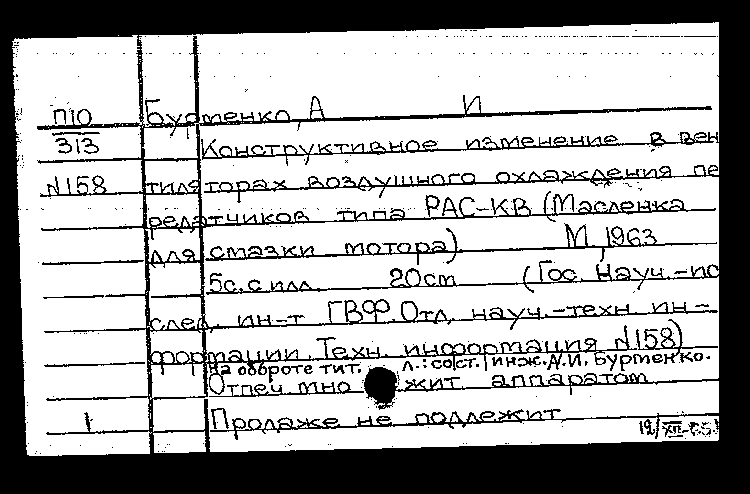 П10 Буртенко, А И
313 Конструктивное изменение в вен
N158 тиляторах воздушного охлаждения пе
редатчиков типа РАС-КВ (Масленка
для смазки мотора) М, 1963
5с. с илл. 20см (Гос. Науч.-ис
след. ин-т ГВФ. Отд. науч.-техн. ин-
формации. Техн. информация N158)
На обороте тит. л.: сост. инж. А.И. Буртенко.
Отпеч. мно жит. аппаратом
1 Продаже не подлежит